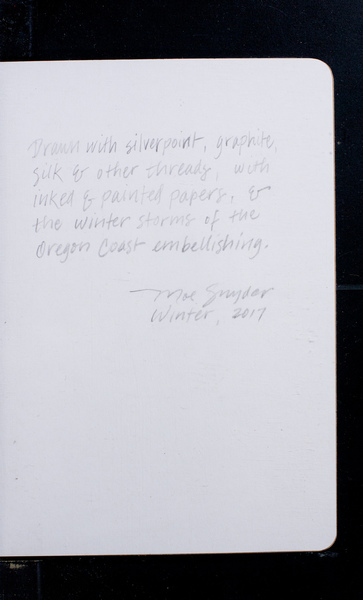 Drawn with silverpoint, graphite,
silk & other threads, with
inked & painted papers, &
the winter storms of the
Oregon Coast embellishing.
—Moe Snyder
Winter, 2017